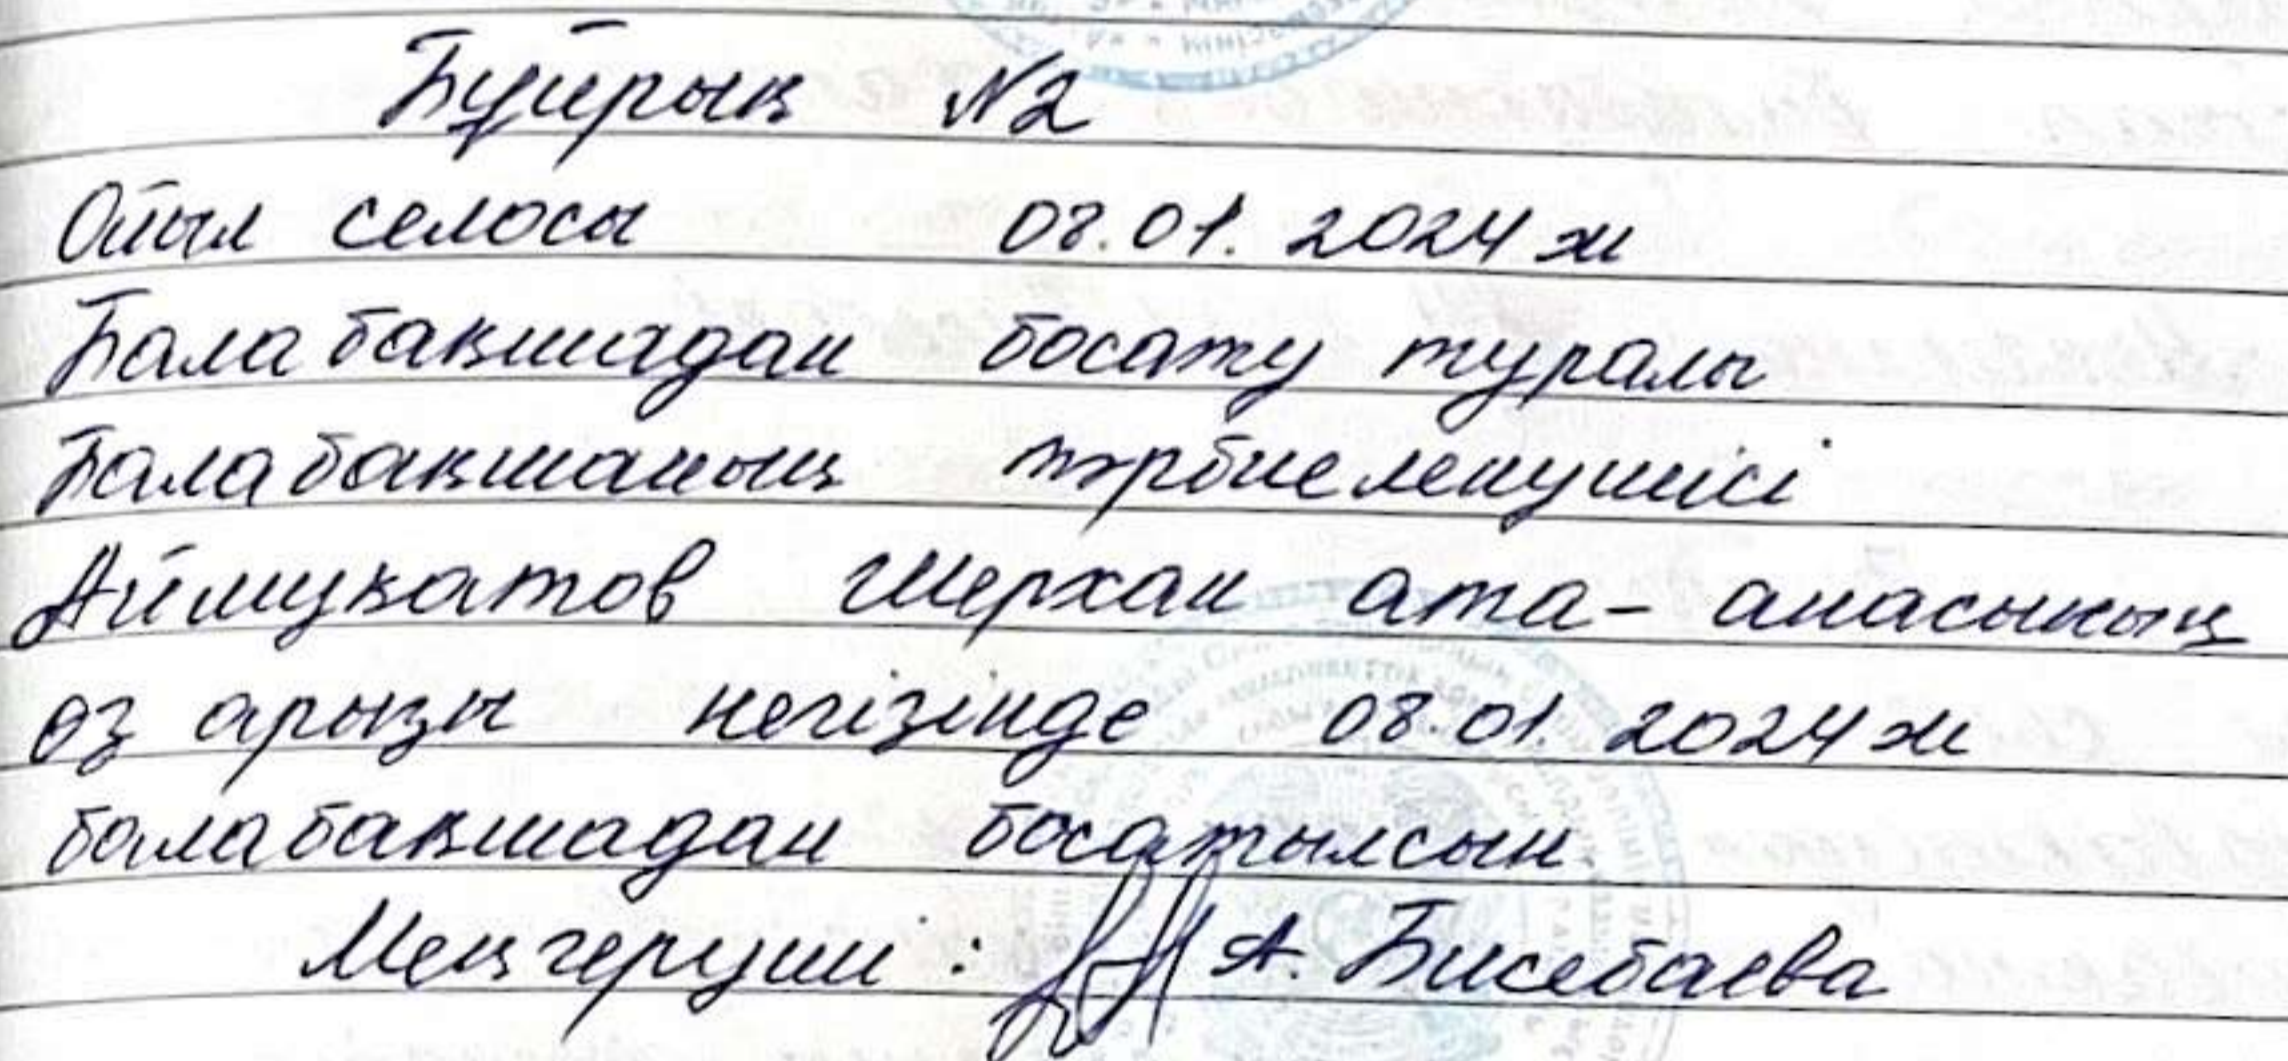 Бұйрық №2
Ойыл селосы 08.01.2024 ж
Бала бақшадан босату туралы
Балабақшаның тәрбиеленушісі
Аймуқатов Шерхан ата-анасының
өз арызы негізінде 08.01.2024 ж
балабақшадан босатылсын.
Меңгеруші: А. Бисебаева